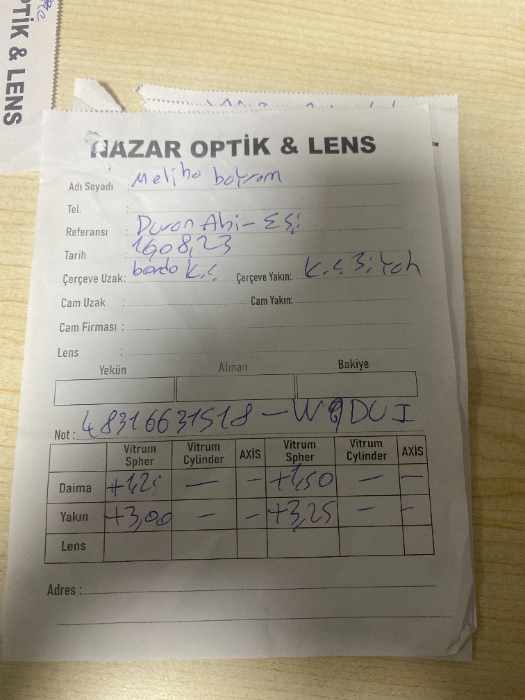 PTİK & LENS
NAZAR OPTİK & LENS
Adı Soyadı : Meliha bayram
Tel. :
Referansı : Duran Abi - Eşi
Tarih : 16.08.23
Çerçeve Uzak: bordo k.ç Çerçeve Yakın: k.ç Siyah
Cam Uzak : Cam Yakın:
Cam Firması :
Lens :
Yekün Alınan Bakiye
Not : 48316631518 - W9DCI
Vitrum Spher Vitrum Cylinder AXİS Vitrum Spher Vitrum Cylinder AXİS
Daima +1,25 — - +1,50 — -
Yakın +3,00 — - +3,25 — -
Lens
Adres :